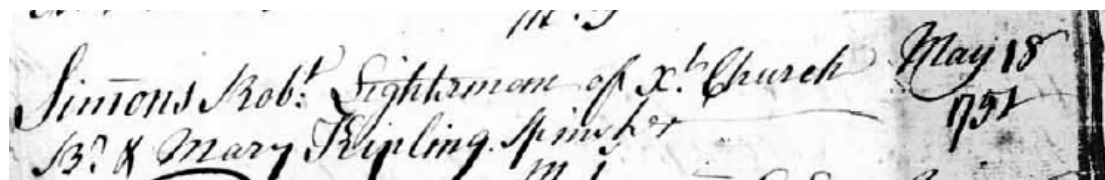 Simons Rob.t Lighterman of X.t Church May 18
B.r & Mary Kipling Spinster 1751